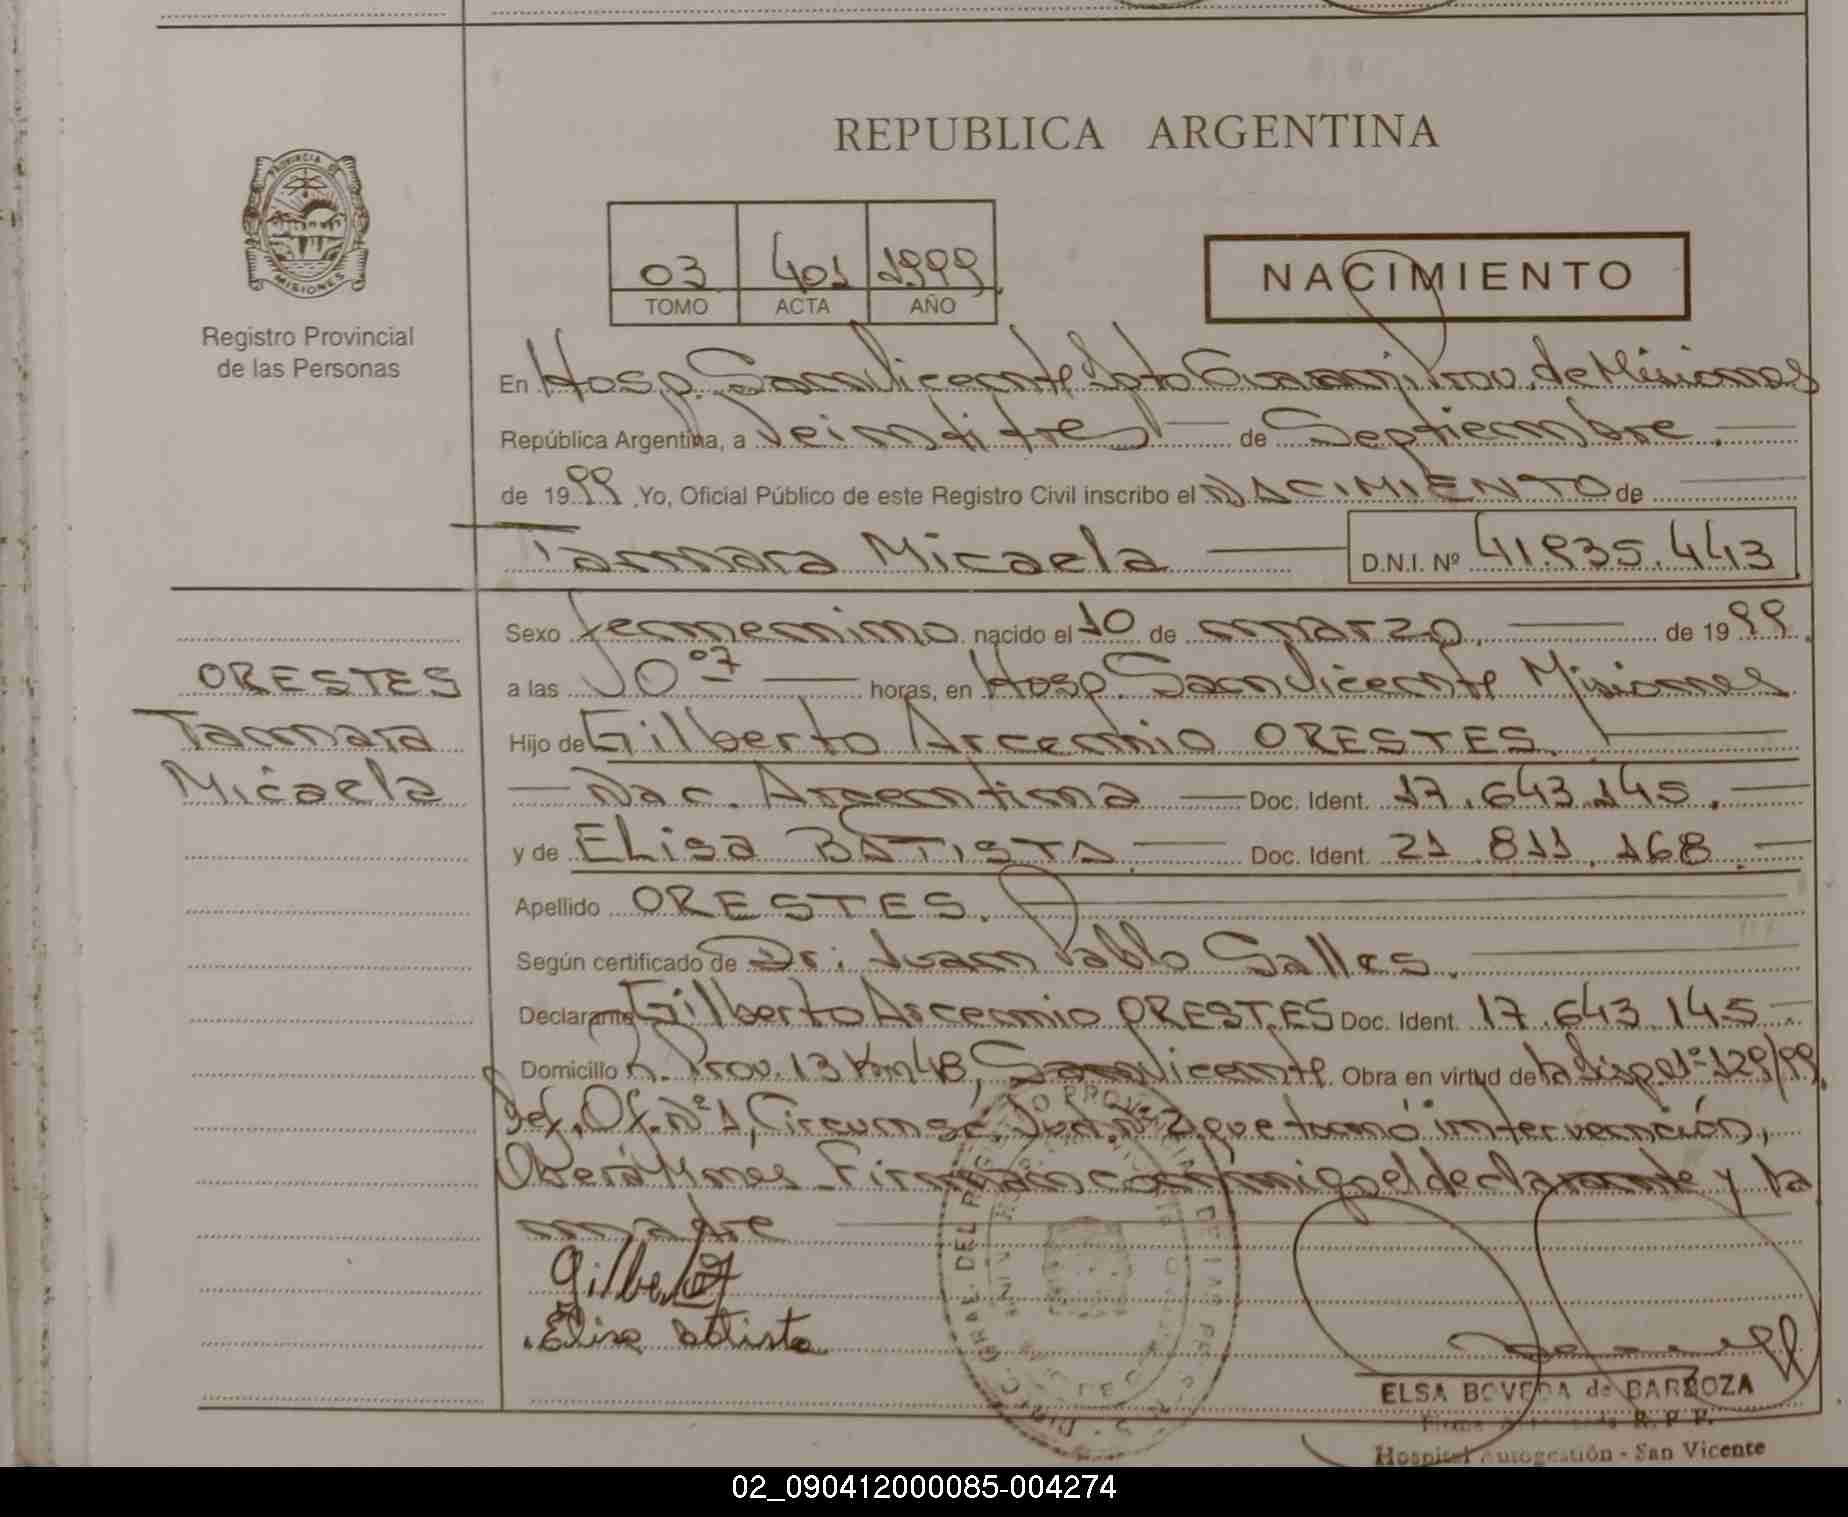 REPUBLICA ARGENTINA
PROVINCIA DE
MISIONES
Registro Provincial
de las Personas
03 401 1999
TOMO ACTA AÑO
NACIMIENTO
En Hosp. San Vicente Dpto Guaraní Prov. de Misiones
República Argentina, a Veintitres de Septiembre.
de 1999. Yo, Oficial Público de este Registro Civil inscribo el NACIMIENTO de
Tamara Micaela D.N.I. Nº 41.835.443
Sexo femenino nacido el 10 de marzo, de 1999.
a las 10º7 horas, en Hosp. San Vicente Misiones
ORESTES
Tamara
Micaela
Hijo de Gilberto Arcenio ORESTES.
Nac. Argentina Doc. Ident. 17.643.145.
y de Elisa BATISTA. Doc. Ident. 21.811.168.
Apellido ORESTES.
Según certificado de Dr: Juan Pablo Salles.
Declarante Gilberto Arcenio ORESTES Doc. Ident. 17.643.145
Domicilio R. Prov. 13 Km 48, San Vicente. Obra en virtud de la Disp. Nº 129/99,
Def. Of. Nº 1, Circunsc. Jud. Nº 2, que tomó intervención,
Oberá Mnes. Firman conmigo el declarante y la
madre
Gilberto
Elisa Batista
ELSA BOVEDA de BARBOZA
R. P. P.
Hospital Autogestión - San Vicente
02_090412000085-004274